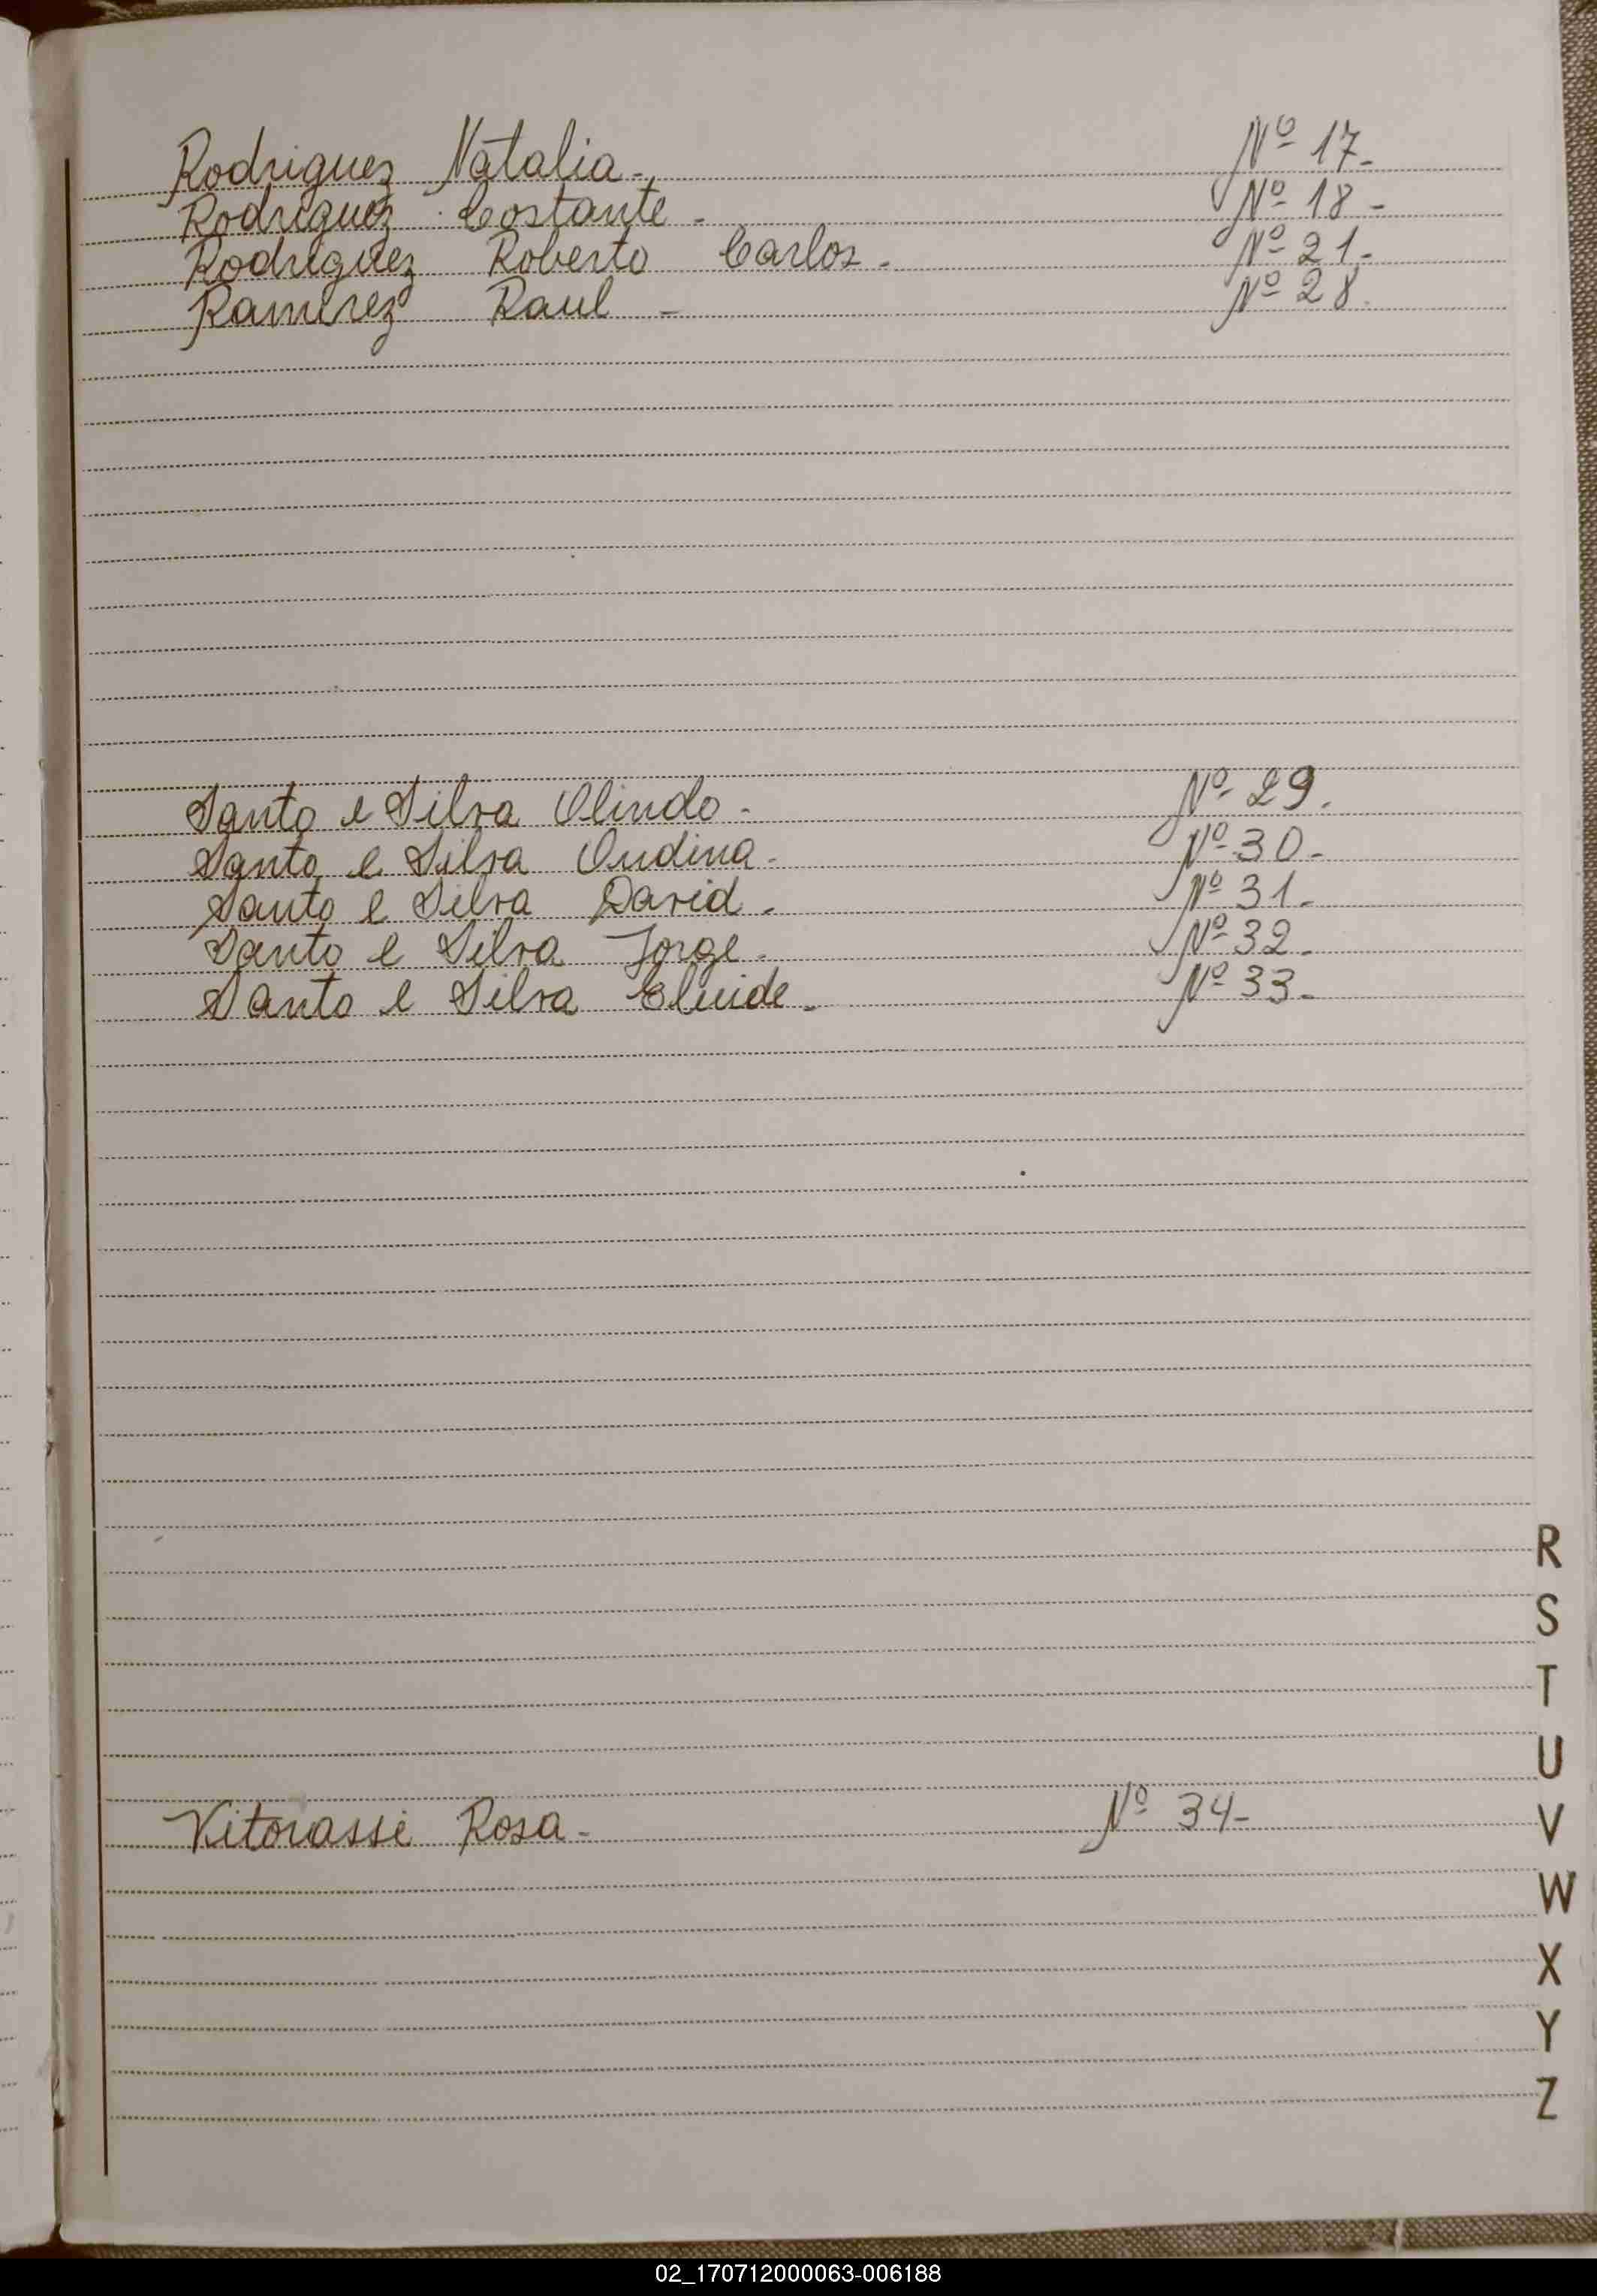 Rodriguez Natalia - Nº 17-
Rodriguez Costante - Nº 18 -
Rodriguez Roberto Carlos - Nº 21-
Ramirez Raul - Nº 28.
Santo e Silva Olindo - Nº 29.
Santo e Silva Ondina - Nº 30-
Santo e Silva David - Nº 31-
Santo e Silva Jorge - Nº 32-
Santo e Silva Cleide - Nº 33-
R
S
T
U
Vitorassi Rosa - Nº 34-
V
W
X
Y
Z
02_170712000063-006188